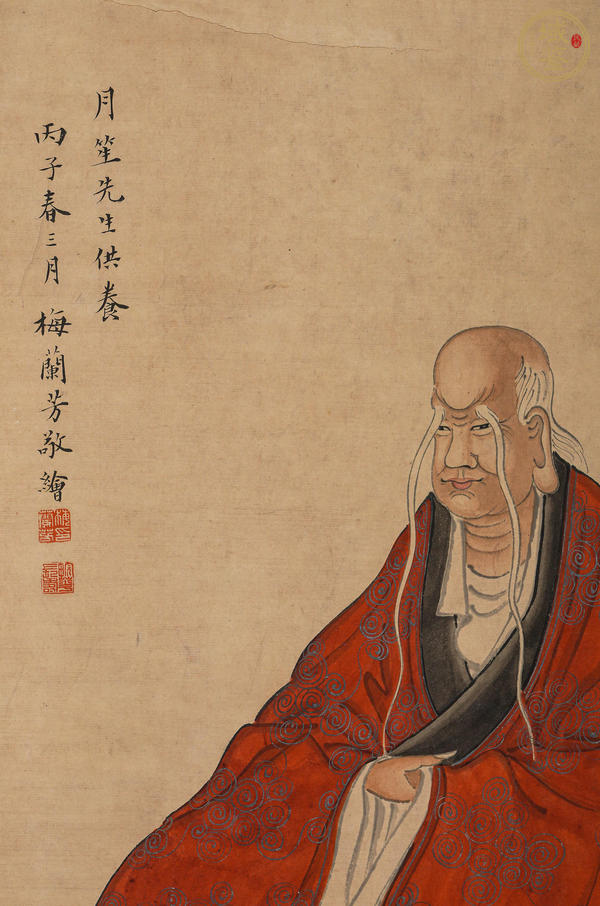 月笙先生供養
丙子春三月 梅蘭芳敬繪